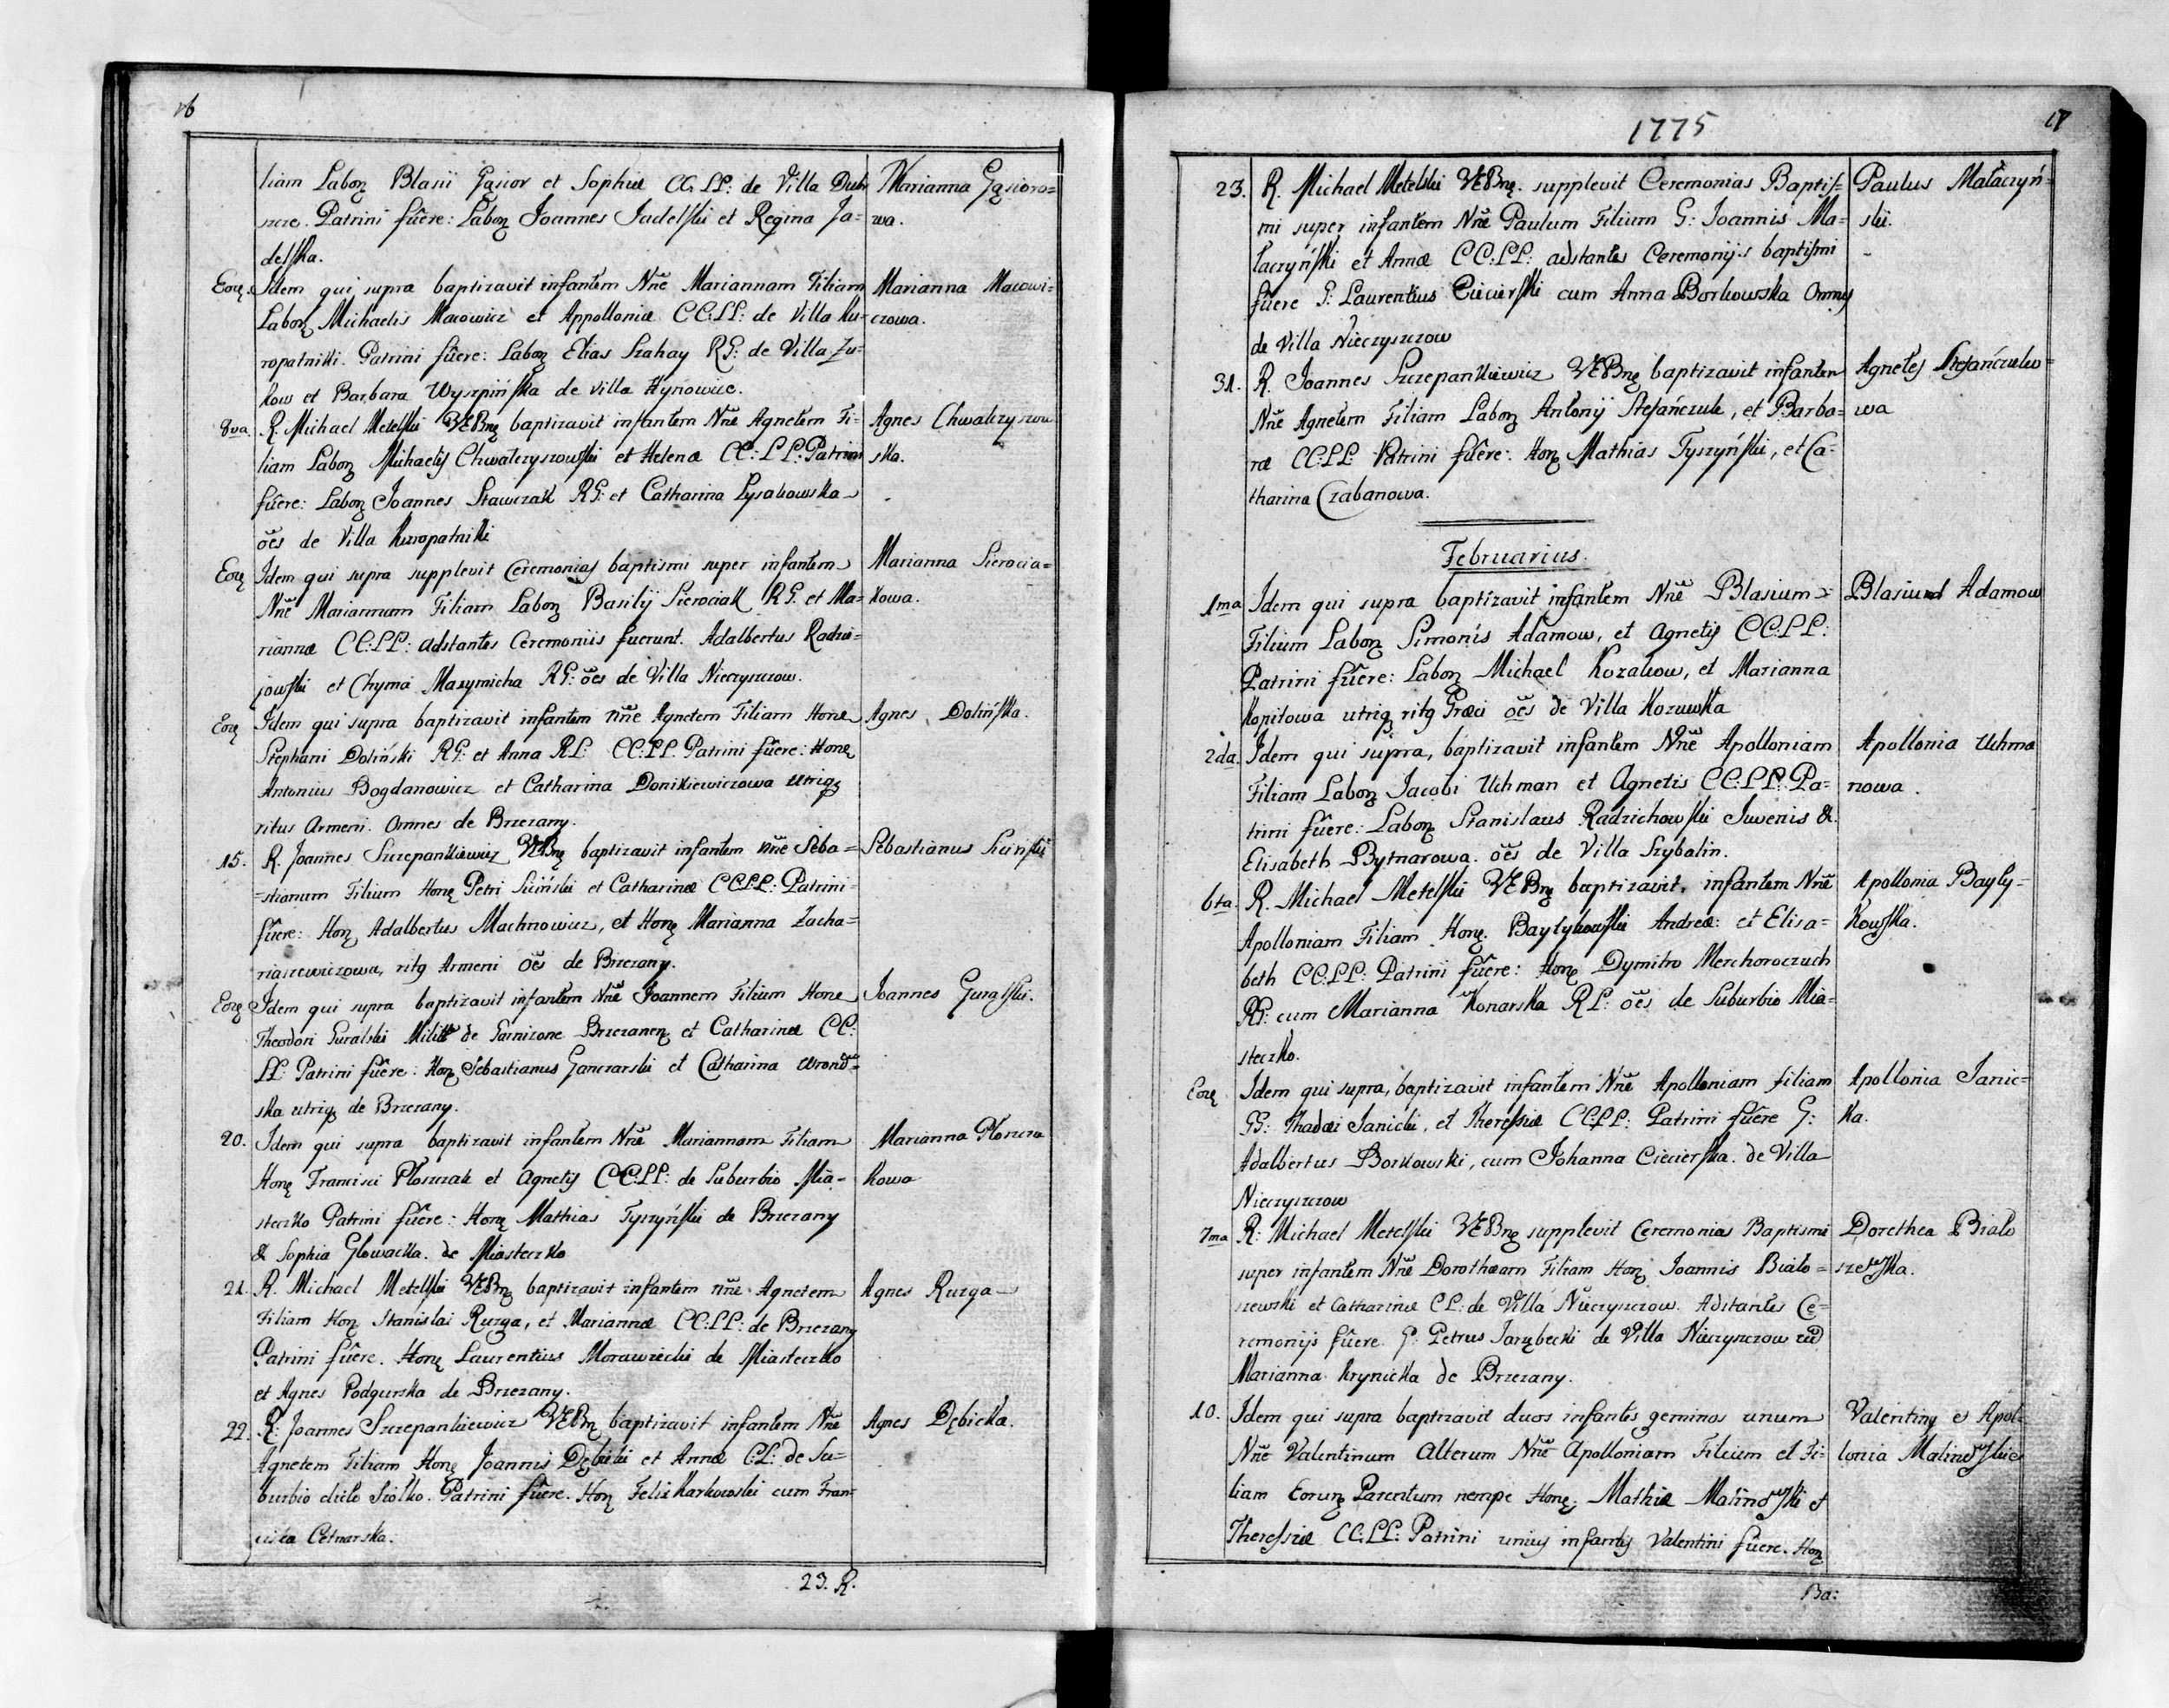 16
liam Labor Blasii Gąsior et Sophiæ CC: LL: de Villa Dub
szcze. Patrini fûere: Labor Joannes Jadelski et Regina Ja=
delska.
Marianna Gąsioro=
wa.
Eorę. Idem qui supra baptizavit infantem Nñe Mariannam Filiam
Labor Michaelis Macowicz et Appolloniæ CC:LL: de Villa Ku=
ropatniki. Patrini fûere: Labor Elias Szahay RG: de Villa Żu=
kow et Barbara Wyszpińska de villa Hynowice.
Marianna Macowi=
czowa.
8va. R. Michael Metelski VEBnę baptizavit infantem Nñe Agnetem Fi=
liam Labor Michaelis Chwalczyszowski et Helenæ CC: LL: Patrini
fûere: Labor Joannes Stawczak RG: et Catharina Lysakowska
oẽs de Villa Kuropatniki
Agnes Chwalczyszow
ska.
Eorę Idem qui supra supplevit Ceremonias baptismi super infantem
Nñe Mariannam Filiam Labor Basilij Sierociak RG. et Ma=
riannæ CC:LL: adstantes Ceremoniis fuerunt. Adalbertus Radzi=
jowski et Chyma Maxymicha RG: oẽs de Villa Nieczyszczow.
Marianna Sierocia=
kowa.
Eorę Idem qui supra baptizavit infantem nñe Agnetem Filiam Honę
Stephani Doliński RG: et Anna RL: CC:LL. Patrini fûere: Honę
Antonius Bogdanowicz et Catharina Donikiewiczowa utriqȝ
ritus Armeni. Omnes de Brzezany.
Agnes Dolińska.
15. R. Joannes Szczepankiewicz VEBnę baptizavit infantem nñe Seba=
=stianum Filium Honę Petri Siciński et Catharinæ CC:LL: Patrini
fûere: Honę Adalbertus Machnowicz, et Honę Marianna Zacha=
riasiewiczowa, ritq Armeni oẽs de Brzezany.
Sebastianus Siciński
Eorę Idem qui supra baptizavit infantem Nñe Joannem Filium Honę
Theodori Guralski Milit de Garnizone Brzezanen et Catharinæ CC:
LL: Patrini fûere: Honę Sebastianus Ganczarski et Catharina Wron
ska utriqȝ de Brzezany.
Joannes Guralski.
20. Idem qui supra baptizavit infantem Nñe Mariannam Filiam
Honę Francisci Ploszczak et Agnetis CC:LL: de Suburbio Mia=
steczko Patrini fûere: Honę Mathias Tyszyński de Brzezany
& Sophia Glowacka. de Miasteczko
Marianna Ploszcza
kowa
21. R. Michael Metelski VEBnę baptizavit infantem nñe Agnetem
Filiam Honę Stanislai Ruzga, et Mariannæ CC:LL: de Brzezany
Patrini fûere. Honę Laurentius Morawiecki de Miasteczko
et Agnes Podgurska de Brzezany.
Agnes Ruzga
22. R: Joannes Szczepankiewicz VEBnę baptizavit infantem Nñe
Agnetem Filiam Honę Joannis Dębicki et Annæ C:L: de Su=
burbio dicto Siolko. Patrini fûere. Honę Felix Karkowski cum Fran=
ciska Cetnarska.
Agnes Dębicka.
23. R.
1775
17
23. R. Michael Metelski VEBnę. supplevit Ceremonias Baptis=
mi super infantem Nñe Paulum Filium G: Joannis Ma=
łaczyński et Annæ CC:LL: adstantes Ceremonijs baptismi
fûere G: Laurentius Ciecierski cum Anna Borkowska Omnes
de Villa Nieczyszczow
Paulus Małaczyń=
ski.
31. R. Joannes Szczepankiewicz VEBnę baptizavit infantem
Nñe Agnetem Filiam Labor Antonij Stefańczuk, et Barba=
ræ CC:LL: Patrini fûere: Honę Mathias Tyszyński, et Ca=
tharina Czabanowa.
Agnetes Stefańczuko=
wa
Februarius.
1ma Idem qui supra baptizavit infantem Nñe Blasium
Filium Labor Simonis Adamow, et Agnetis CC:LL:
Patrini fûere: Labor Michael Kozakow, et Marianna
Kopitowa utriq ritq Græci oẽs de Villa Kozuwka
Blasius Adamow
2da. Idem qui supra, baptizavit infantem Nñe Apolloniam
Filiam Labor Jacobi Uchman et Agnetis CC:LL: Pa=
trini fûere: Labor Stanislaus Radzichowski Juvenis &.
Elisabeth Bytnarowa. oẽs de Villa Szybalin.
Apollonia Uchma
nowa.
6ta. R. Michael Metelski VEBnę baptizavit. infantem Nñe
Apolloniam Filiam Honę. Baylykowski Andreæ: et Elisa=
beth CC:LL: Patrini fûere: Honę Dymitro Merchoroczuch
RG: cum Marianna Konarska RL: oẽs de Suburbio Mia=
steczko.
Apollonia Bayly=
kowska.
Eorę Idem qui supra, baptizavit infantem Nñe Apolloniam filiam
GG: Thadæi Janicki, et Theressiæ CC:LL: Patrini fûere G:
Adalbertus Borkowski, cum Johanna Ciecierska. de Villa
Nieczyszczow
Apollonia Janic=
ka.
7ma R: Michael Metelski VEBnę supplevit Ceremonias Baptismi
super infantem Nñe Dorotheam Filiam Honę Joannis Bialo=
szewski et Catharinæ CL: de Villa Nieczyszczow. Adstantes Ce=
remonijs fûere. G: Petrus Jarzębecki de Villa Nieczyszczow
Marianna Krynicka de Brzezany.
Dorethea Bialo
szewska.
10. Idem qui supra baptizavit duos infantes geminos unum
Nñe Valentinum Alterum Nñe Apolloniam Filium et Fi=
liam Eorunȝ Parentum nempe Honę: Mathiæ Malinowski et
Theressiæ CC:LL: Patrini unius infantis Valentini fûere. Honę
Valentiny et Apol=
lonia Malinowskie
Ba: